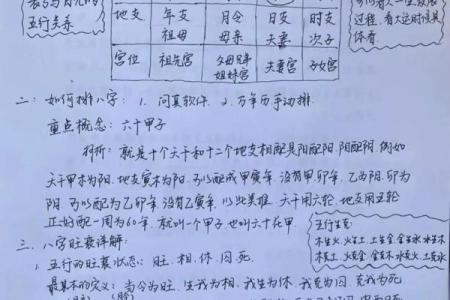 五行关系
地支 年支 月令 日支 时支
祖母 母亲 夫妻 次子
宫位 祖先宫 父母兄弟姐妹宫 夫妻宫 子女宫
过程,看大运时候具
体看
二:如何排八字:1.问真软件.2.万年历手动排.
重点概念:六十甲子
拆析:就是十个天干和十二个地支相配是阳配阳,阴配阴.例如
天干甲木为阳.地支寅木为阳.可以配成甲寅年.没有甲卯年.乙为阴.卯为
阴.可以配为乙卯年没有乙寅年.以此类推.天干用六轮.地支用五轮
正好配一周为60年.就叫一个甲子.也叫六十花甲.
三.八字旺衰详解:
五行生克:
木生火 火生土 土生金 金生水 水生木
木克土 火克金 土克水 金克木 水克火
1.五行的旺衰状态:旺.相.休.囚.死.
最基本的定义:当令为旺.生我为相.我生为休.我克为囚.克我为死